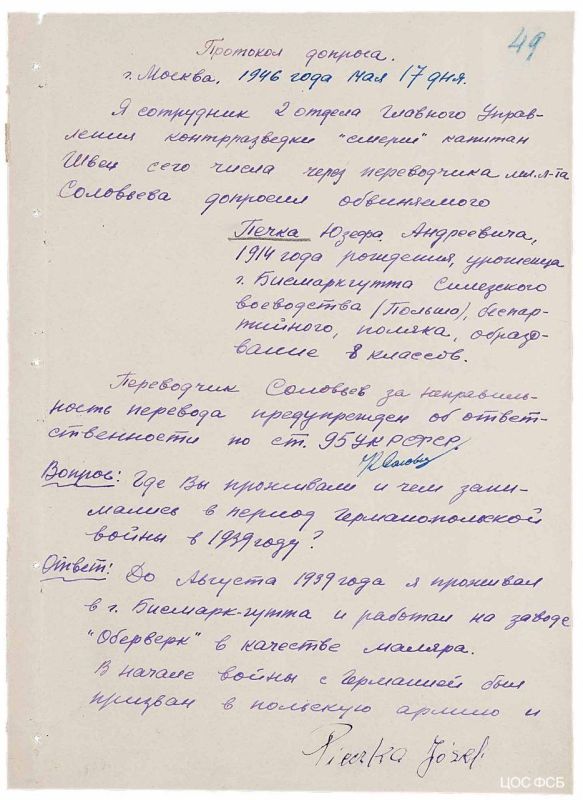 49
Протокол допроса.
г. Москва, 1946 года мая 17 дня.
Я сотрудник 2 отдела Главного Управ-
ления контрразведки "смерш" капитан
Швец сего числа через переводчика мл. л-та
Соловьева допросил обвиняемого
Печка Юзефа Андреевича,
1914 года рождения, уроженца
г. Бисмаркгутта Силезского
воеводства (Польша), беспар-
тийного, поляка, образо-
вание 8 классов.
Переводчик Соловьев за неправиль-
ность перевода предупрежден об ответ-
ственности по ст. 95 УК РСФСР.
Вопрос: Где Вы проживали и чем зани-
мались в период Германо-польской
войны в 1939 году?
Ответ: До Августа 1939 года я проживал
в г. Бисмарк-гутта и работал на заводе
"Оберверк" в качестве маляра.
В начале войны с Германией был
призван в польскую армию и
Pieczka Józef
ЦОС ФСБ